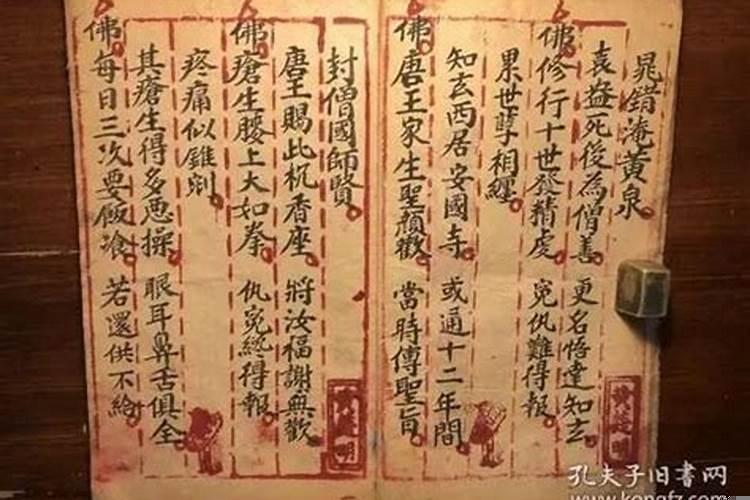 晁錯淹黃泉
袁盎死後為僧善 更名悟達知玄
佛修行十世發精虔 冤仇難得報
累世孽相纏
知玄西居安國寺 或通十二年間
佛唐王家生聖顏歡 當時傳聖旨
封僧國師賢
唐王賜此机香座 將汝福謝無歡
佛瘡生腰上大如拳 仇冤終得報
疼痛似錐剜
其瘡生得多惡操 眼耳鼻舌俱全
佛每日三次要飯飡 若還供不給
孔夫子旧书网